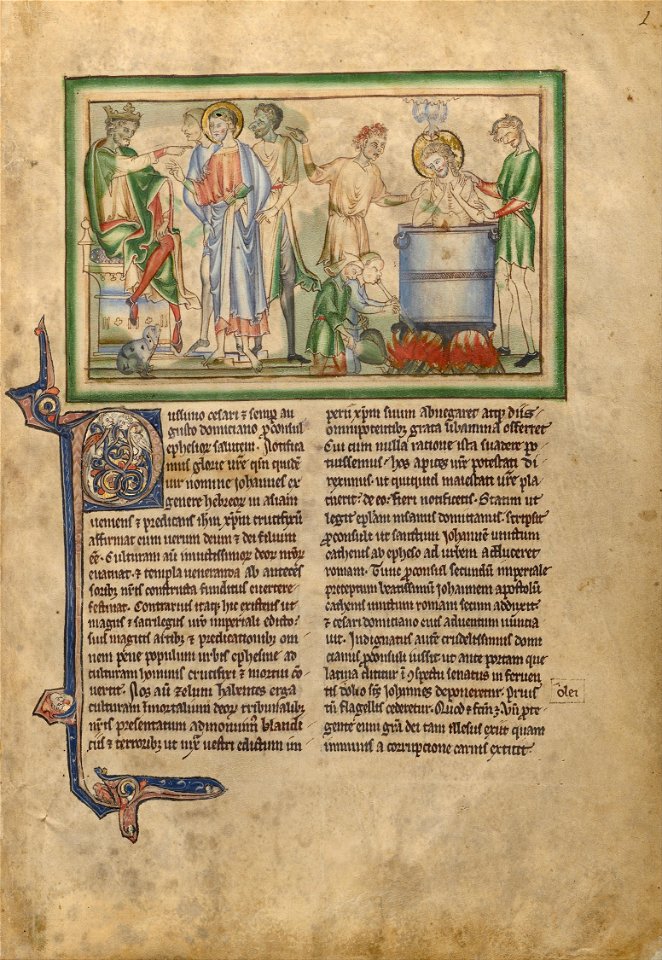 1
Piissimo cesari ⁊ semp au
gusto domiciano ꝓconsul
ephesior salutem. Notifica
mus glorie
vir nomine Johannes ex
genere hebreor in asiam
uemens ⁊ predicans ihm xpm crucifixū
affirmat eum uerum deum ⁊ dei filium
ee. Culturam aū inuictissimor deor nror
euacuat. ⁊ templa ueneranda ab anteces
soribꝫ nris constructa funditus euertere
festinat. Contrarius itaqꝫ hic existens ut
magus ⁊ sacrilegus uro imperiali edicto.
suis magicis artibꝫ ⁊ predicationibꝫ om
nem pene populum urbis ephesine ad
culturam hominis crucifixi ⁊ mortui con
uertit. Nos aū zelum habentes erga
culturam immortalium deor tribunalibꝫ
nris presentatum admonuimꝰ blandi
ciis ⁊ terroribꝫ ut iuxa vestri edictum im
perii xpm suum abnegaret atqꝫ diis
omnipotentibꝫ grata libamina offerret
Cui cum nulla ratione ista suadere po
tuissemus. hos apices ure potestati di
reximus. ut quicquid maiestati ure pla
cuerit. de eo fieri notificetis. Statim ut
legit eplam insanus domicianus. scripsit
ꝓconsuli ut sanctum Johannem uinctum
cathenis ab epheso ad urbem adduceret
romam. Tunc ꝓconsul secundum imperiale
preceptum beatissimum Johannem apostolū
cathenis uinctum romam secum adduxit.
⁊ cesari domiciano eius aduentum nuncia
uit. Indignatus autē crudelissimus domi
cianus ꝓconsuli iussit ut ante portam que
latina dicitur in ꝯspectu senatus in feruen
tis dolio scs Johannes deponeretur. Prius
tn flagellis cederetur. Quod ⁊ fcm ē. Vn ꝓte
gente eum gra dei tam illesus exiit quam
immunis a corrupcione carnis extitit
olei